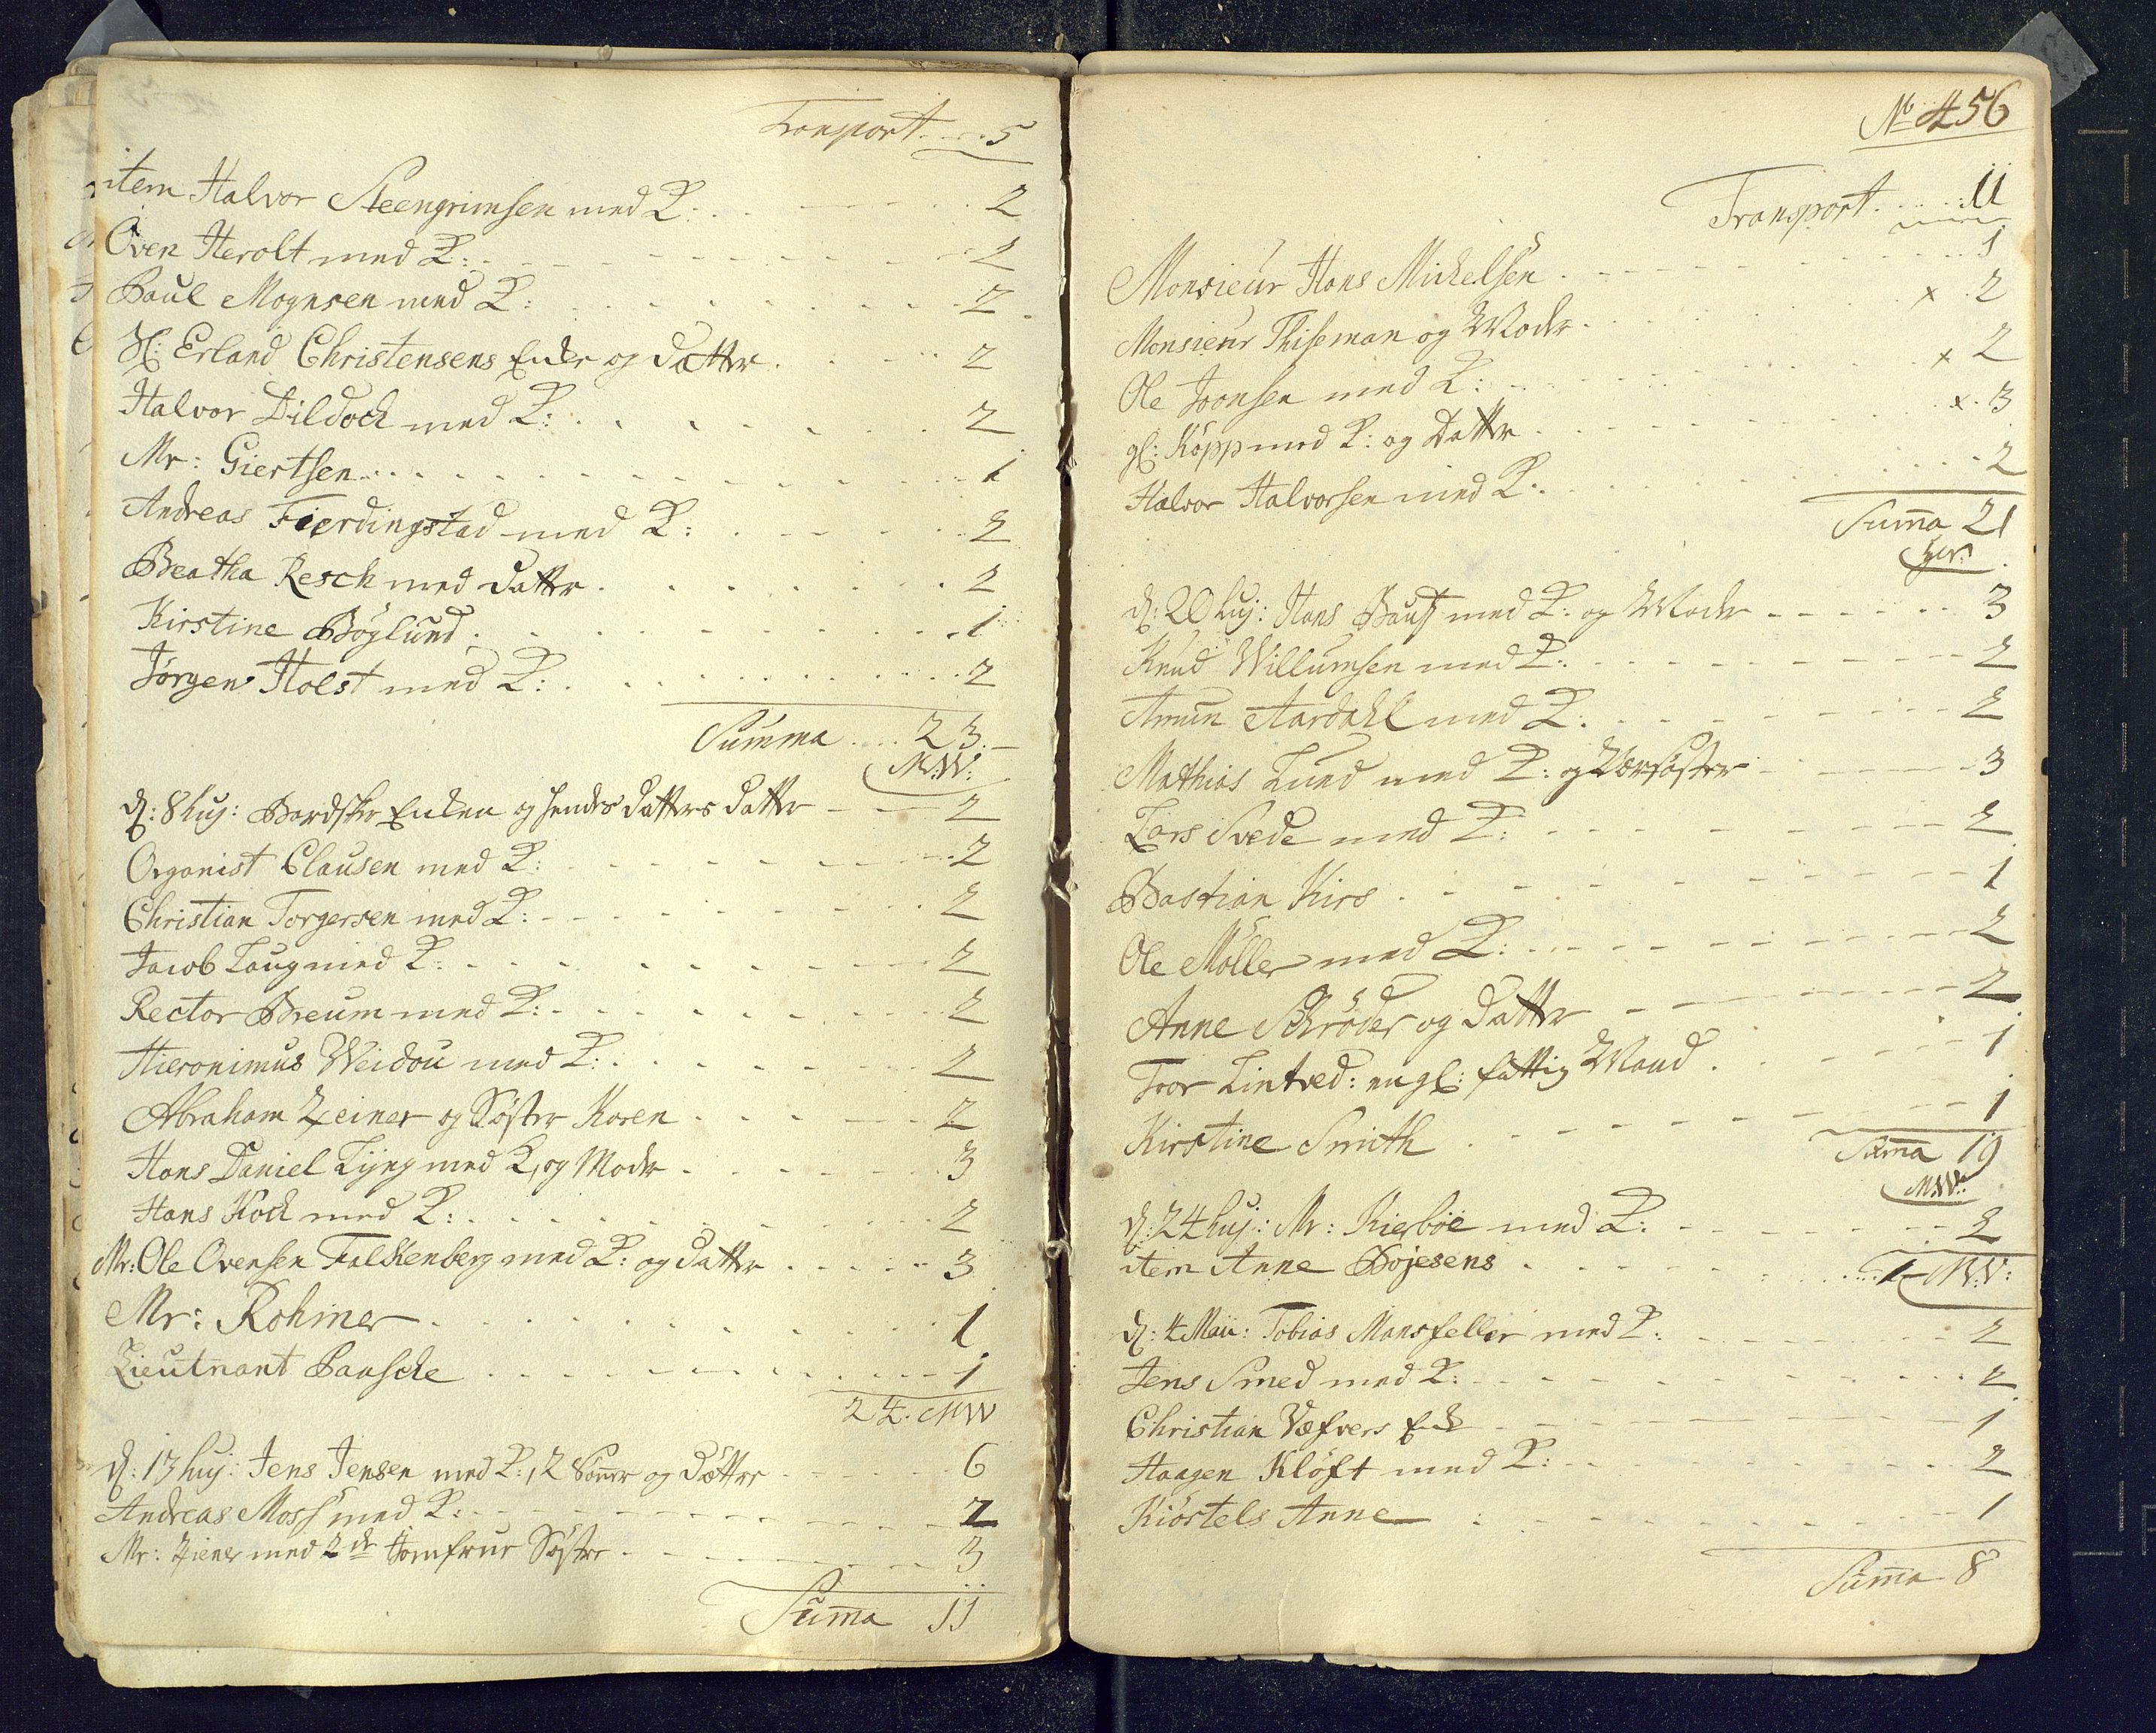 Transport 5
item Halvor Steengrimsen med K: 2
Oven Herolt med K: 2
Poul Mognsen med K: 2
Sl: Erland Christensens Enke og datter 2
Halvor Dildock med K: 2
Mr: Giertsen 1
Andreas Fierdingstad med K: 2
Beatha Resch med datter 2
Kirstine Böglund 1
Jørgen Holst med K: 2
Summa 23
M:W:
d: 8 huj: Bardskr Enken og hendes datters datter 2
Organist Clausen med K: 2
Christian Torgersen med K: 2
Jacob Laug med K: 2
Rector Breum med K: 2
Hieronimus Weidou med K: 2
Abraham Zeiner og Söster Koren 2
Hans Daniel Lyng med K, og Moder 3
Hans Kock med K: 2
Mr: Ole Ovensen Falkenberg med K: og datter 3
Mr: Rohmer 1
Lieutnant Paasche 1
24. MW
d: 13 huj: Jens Jensen med K:, 2 Sönner og Dötter 6
Andreas Moss med K: 2
Mr: Ziener med 2de Jomfrue Söstre 3
Summa 11
No 456
Transport 11
Monsieur Hans Mickelsen 1
Monsieur Thiseman og Moder x 2
Ole Joonsen med K: x 2
gl: Köpp med K: og Datter x 3
Halvor Halvorsen med K: 2
Summa 21
d: 20 huj: Hans Bauss med K: og Moder 3
Knud Willumsen med K: 2
Amun Aardahl med K: 2
Mathias Lund med K: og Værsöster 3
Lars Svede med K: 2
Bastian Kirs 1
Ole Möller med K: 2
Anne Schröder og datter 2
Toor Lintved: en gl: fattig Mand 1
Kirstine Smith 1
Summa 19
M:W:
d: 24 huj: Mr: Kierböe med K: 2
item Anne Bojesens 1 M:W:
d: 4 Maii: Tobias Mansfeller med K: 2
Jens Smed med K: 2
Christian Væfvers Enke 1
Haagen Klöft med K: 2
Kiörstels Anne 1
Summa 8